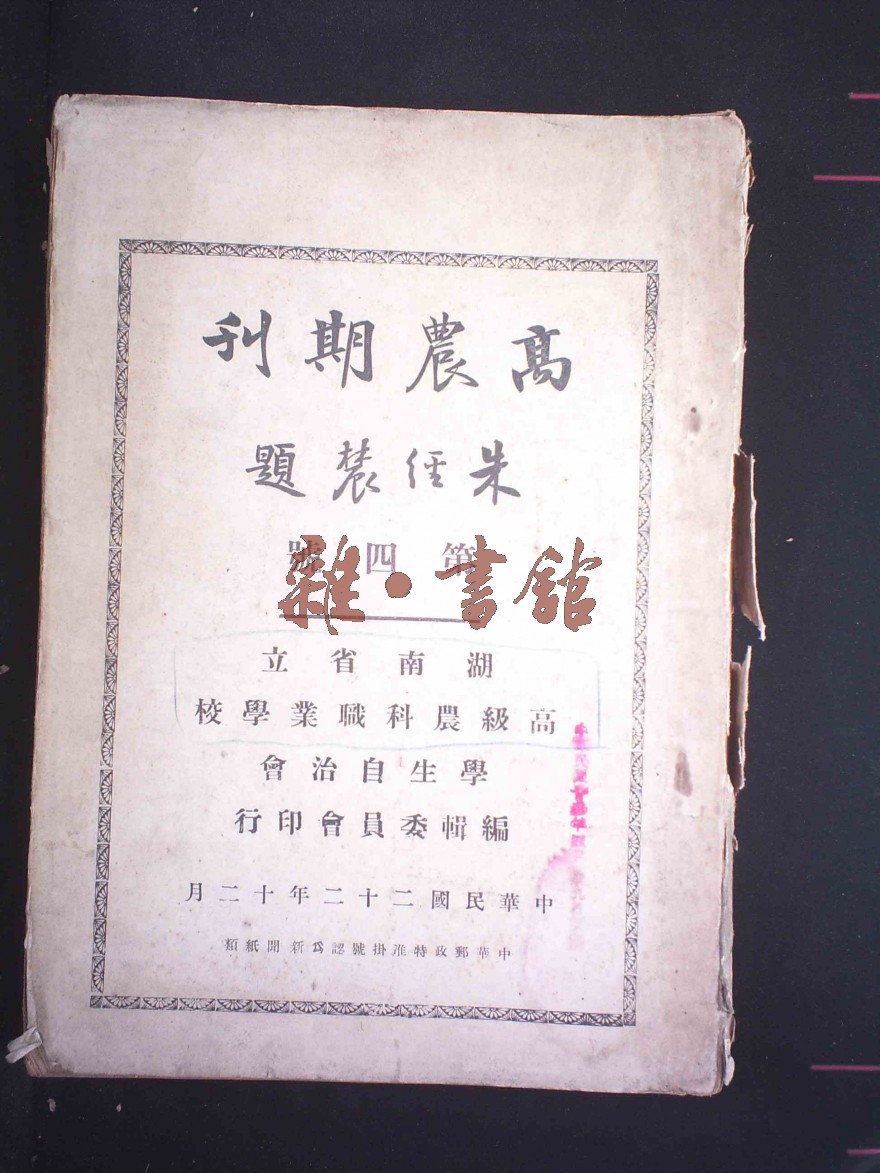 高農期刊
朱經農題
第四號
雜·書館
湖南省立
高級農科職業學校
學生自治會
編輯委員會印行
中華民國二十二年十二月
中華郵政特准掛號認爲新聞紙類